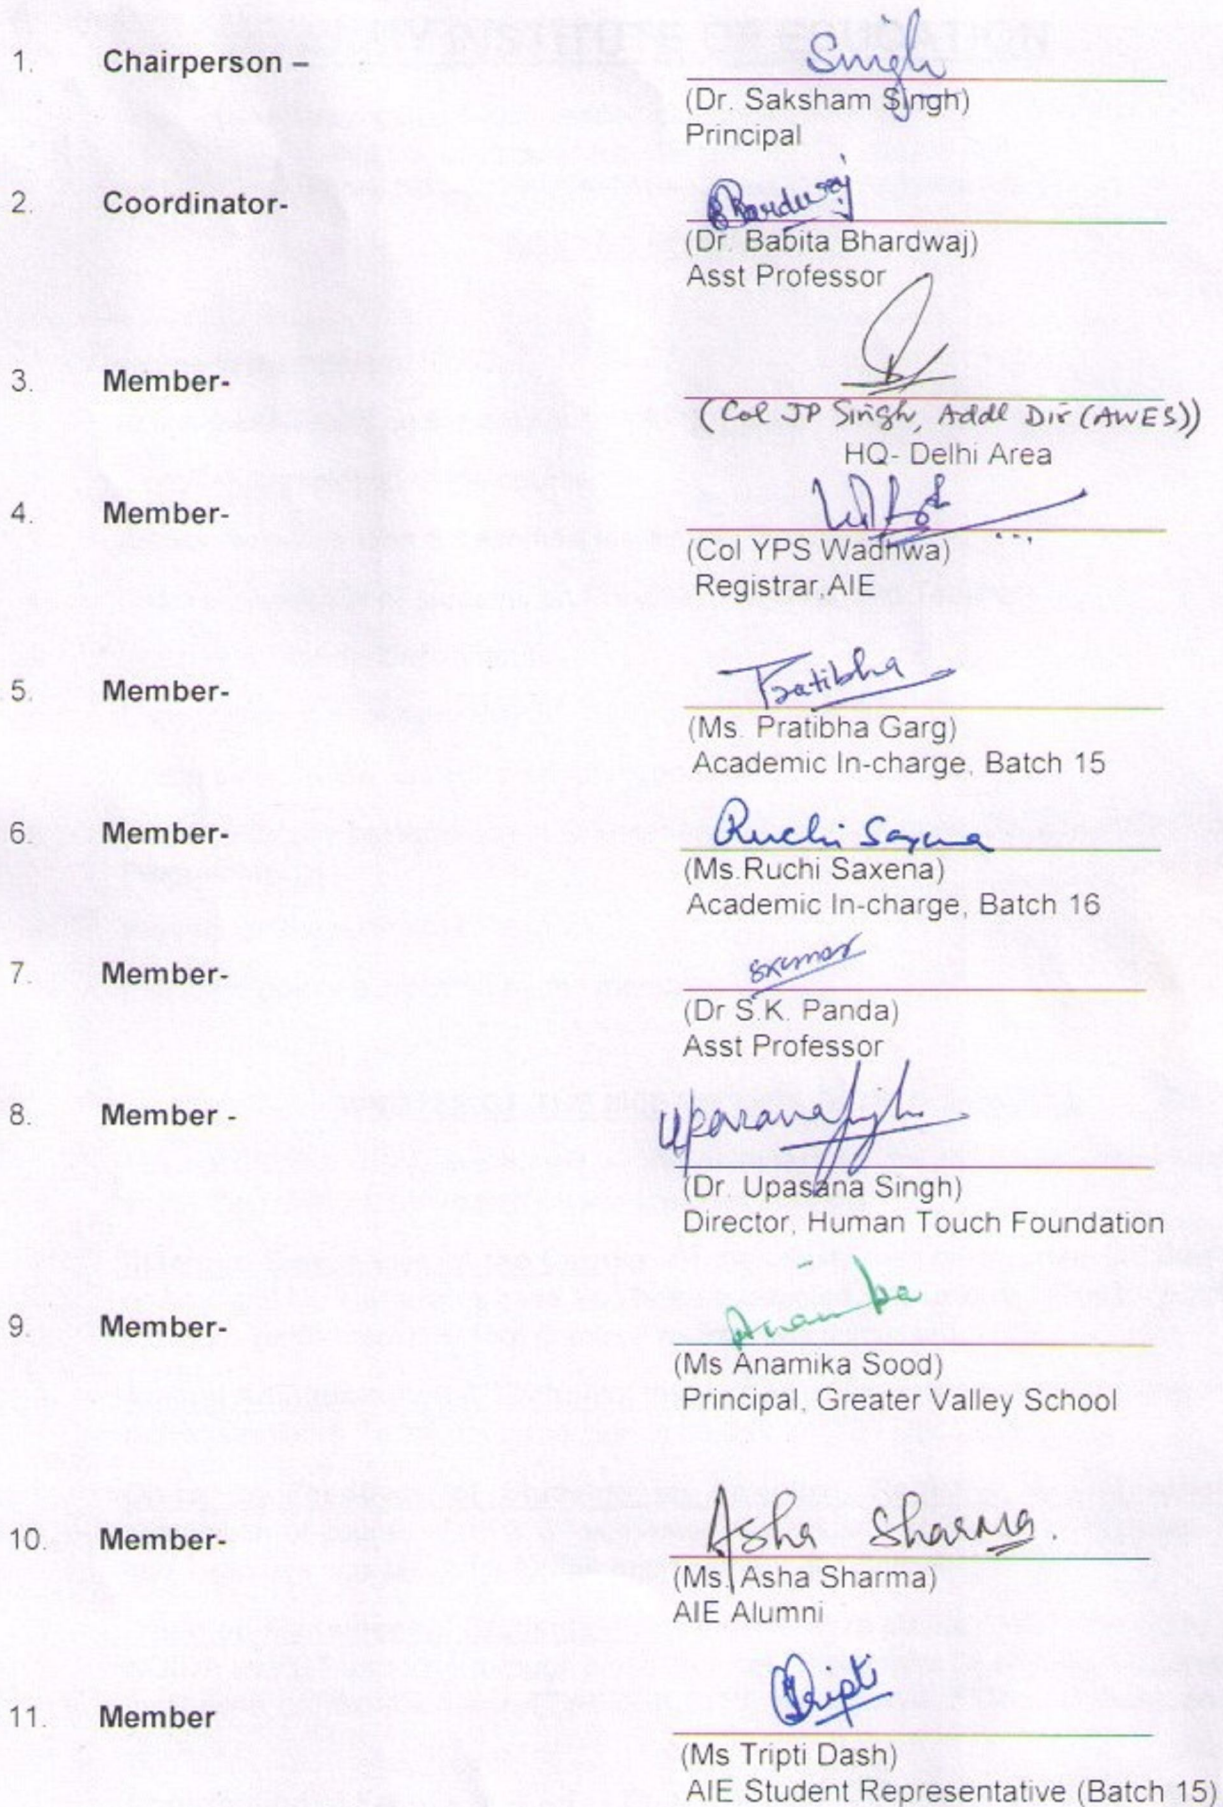 Singh
1. Chairperson –
(Dr. Saksham Singh)
Principal
BBhardwaj
2. Coordinator-
(Dr. Babita Bhardwaj)
Asst Professor
3. Member-
(Col JP Singh, Addl Dir (AWES))
HQ- Delhi Area
4. Member-
(Col YPS Wadhwa)
Registrar,AIE
Pratibha
5. Member-
(Ms. Pratibha Garg)
Academic In-charge, Batch 15
6. Member- Ruchi Saxena
(Ms.Ruchi Saxena)
Academic In-charge, Batch 16
7. Member-
(Dr S.K. Panda)
Asst Professor
8. Member - Upasana Singh
(Dr. Upasana Singh)
Director, Human Touch Foundation
Anamika
9. Member-
(Ms Anamika Sood)
Principal, Greater Valley School
10. Member- Asha Sharma.
(Ms. Asha Sharma)
AIE Alumni
Tripti
11. Member
(Ms Tripti Dash)
AIE Student Representative (Batch 15)